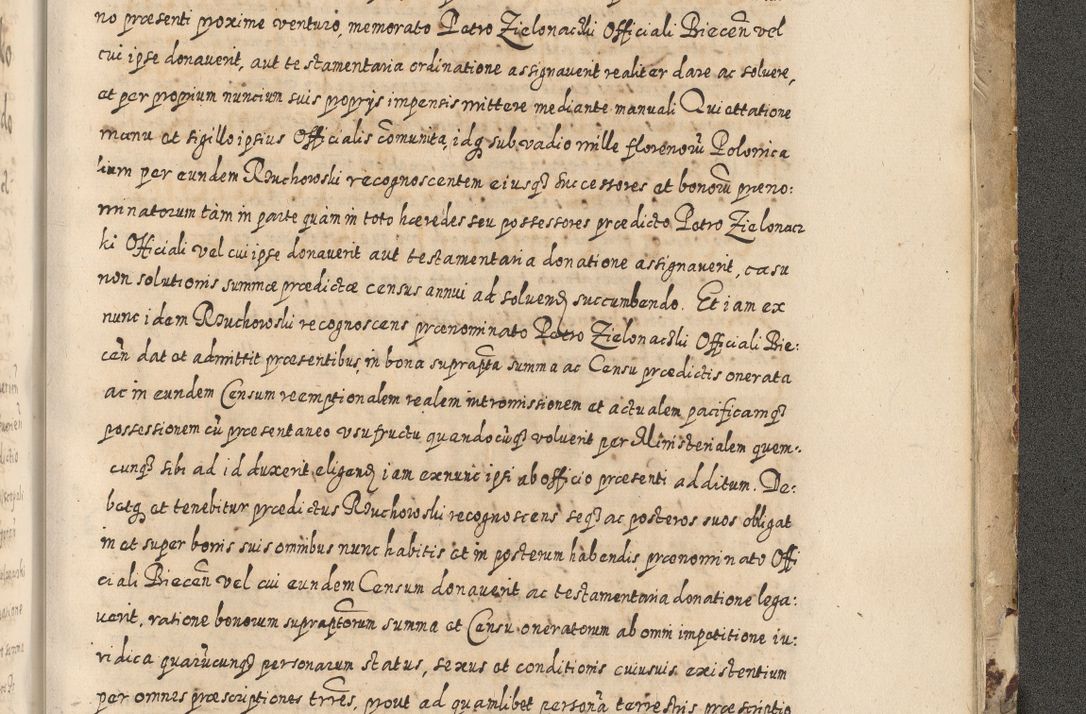 no præsenti proxime venturo, memorato Petro Zielonacki Officiali Biecen̄ vel
cui ipse donaverit, aut testamentaria ordinatione assignaverit realiter dare ac solvere,
et per proprium nuncium suis proprijs impensis mittere mediante manuali Quiettatione
manu et sigillo ipsius Officialis com̄unita, idq3 sub vadio mille florenorū Polonica
lium per eundem Ruchowski recognoscentem eiusq3 successores et bonorū preno:
minatorum tàm in parte quàm in toto hæredes seu possessores prædicto Petro Zielonac
ki Officiali vel cui ipse donaverit aut testamentaria donatione assignaverit, casu
non solutionis summæ prædictæ census annui ad solvend succumbendo. Et iam ex
nunc idem Ruchowski recognoscens prænominato Petro Zielonacki Officiali Bie:
cen̄ dat et admittit præsentibus, in bona suprap̄ta summa ac Censu prædictis onerata
ac in eundem Censum reemptionalem realem intromissionem et actualem pacificamq3
possessionem cū præsentaneo usufructu quandocūq3 voluerit per Ministerialem quem:
cunq3 sibi ad id duxerit eligend iam exnunc ipsi ab officio præsenti additum. De:
betq3 et tenebitur prædictus Ruchowski recognoscens seq3 ac posteros suos obligat
in et super bonis suis omnibus nunc habitis et in posterum habendis prænominato Offi
ciali Biecen̄ vel cui eundem Censum donaverit ac testamentaria donatione lega:
verit, ratione bonorum suprap̄torum summa et Censu oneratorum ab omni impetitione iu:
ridica quarūcunq3 personarum status, sexus et conditionis cuiusvis existentium
per omnes præscriptiones trr̄es, prout ad quamlibet personā terrestris præscriptio